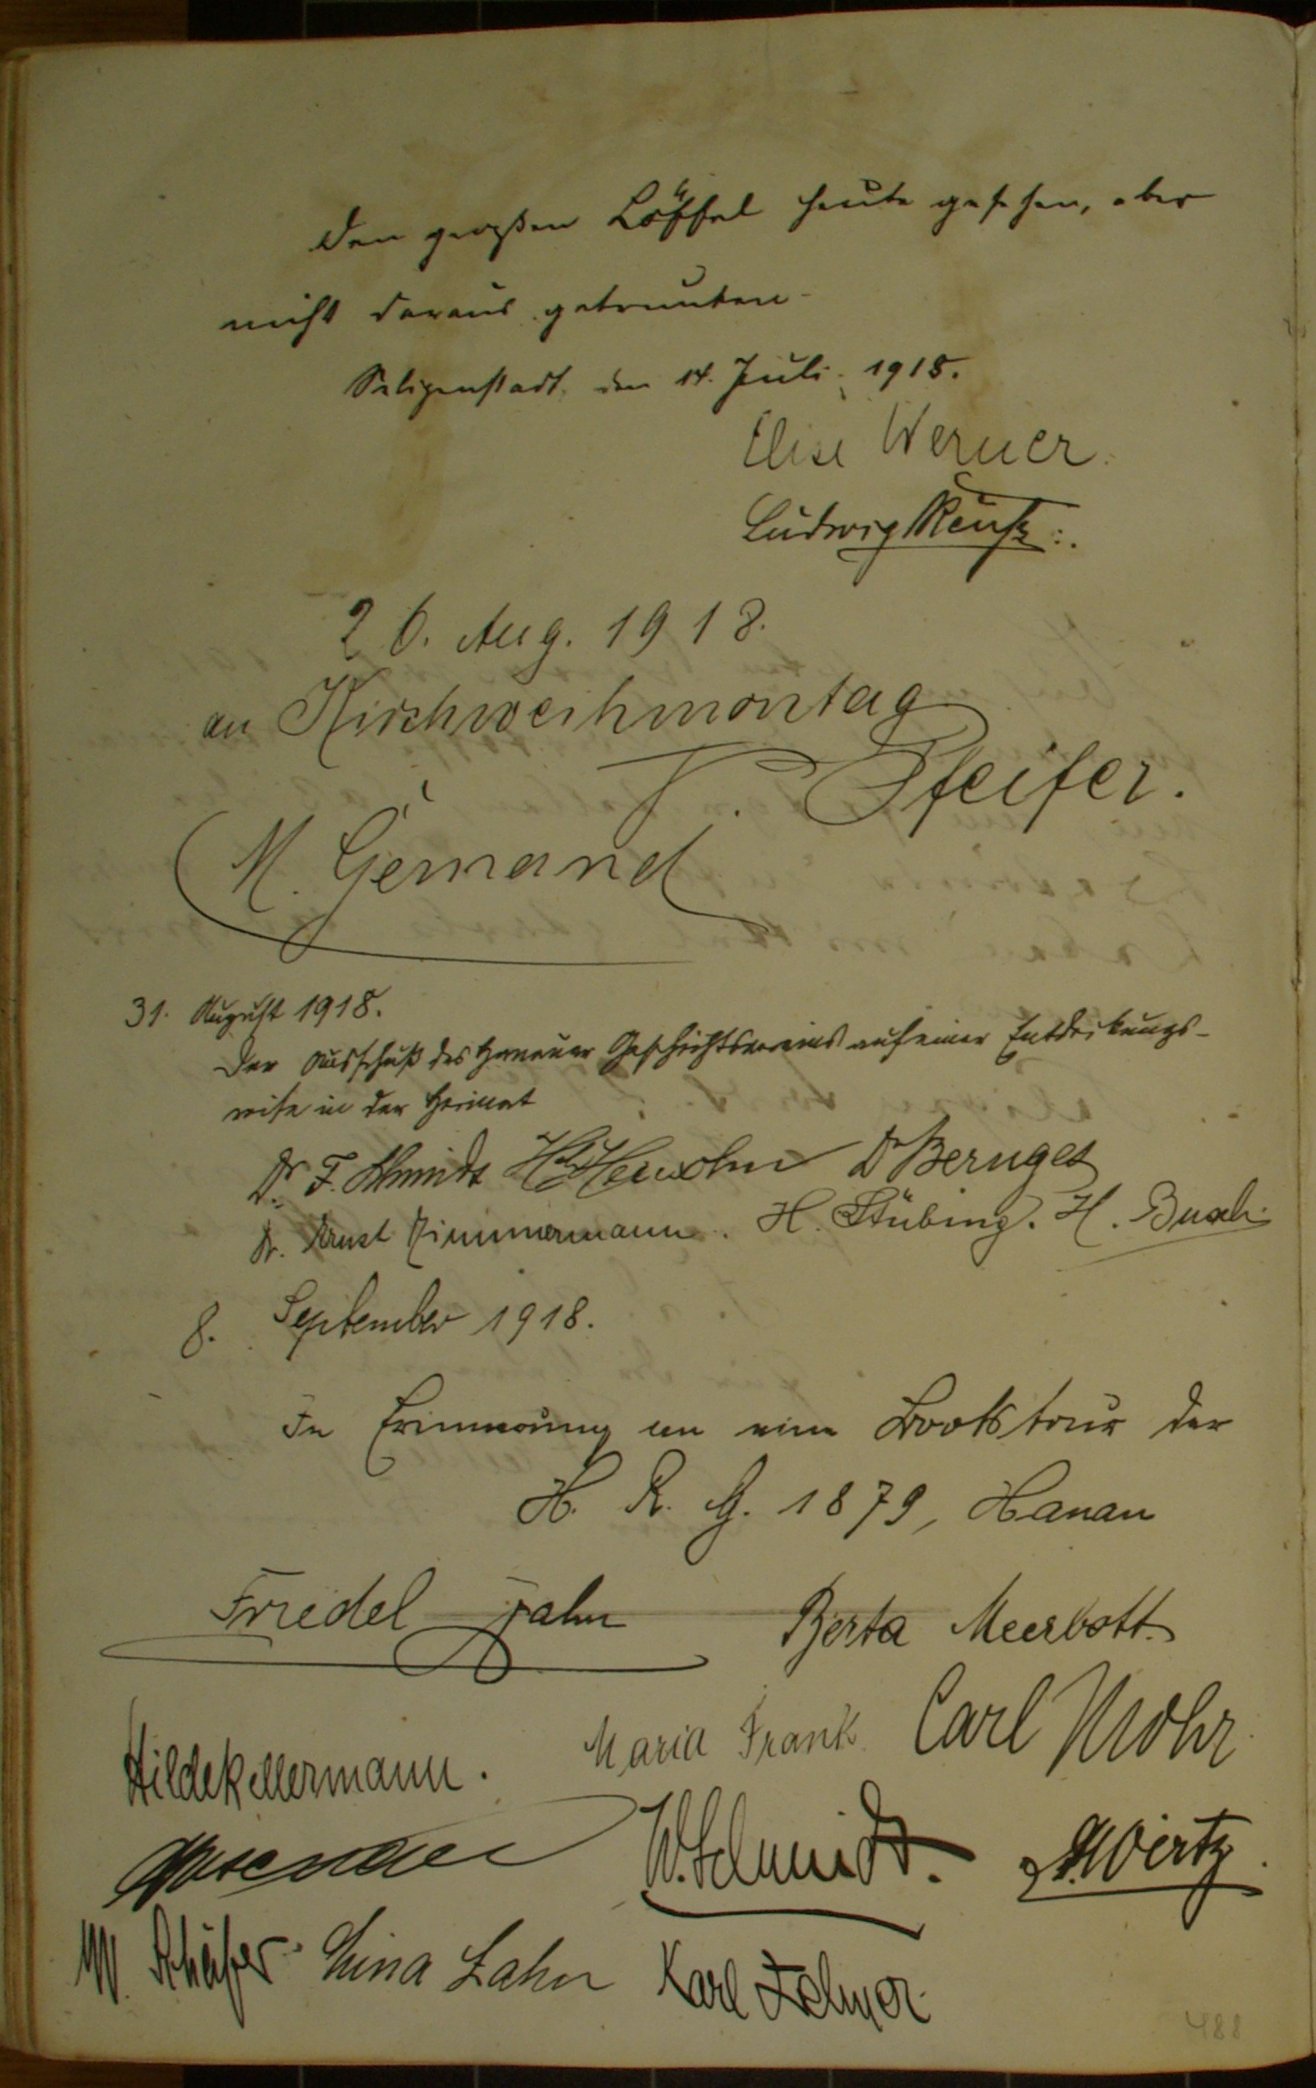 Den großen Löffel heute gesehen, aber
nicht daraus getrunken.
Seligenstadt, den 14. Juli 1918.
Elise Werner.
Ludwig
26. Aug. 1918.
an Kirchweihmontag
Pfeifer.
M. Gernand
31. August 1918.
Der Ausschuß des Hanauer Geschichtsvereins auf einer Entdeckungs-
reise in der Heimat
Dr. F. Schmidt Dr Bernges
Dr. Ernst Zimmermann. H. Stübing. H. Busch.
8. September 1918.
In Erinnerung an eine Bootstour der
H. R. G. 1879, Hanau
Friedel Jahn Berta Meerbott.
Hilde Kellermann. Maria Frank. Carl Mohr
W. Schmidt. Wirtz.
W. Schäfer. Lina Zahn Karl
488